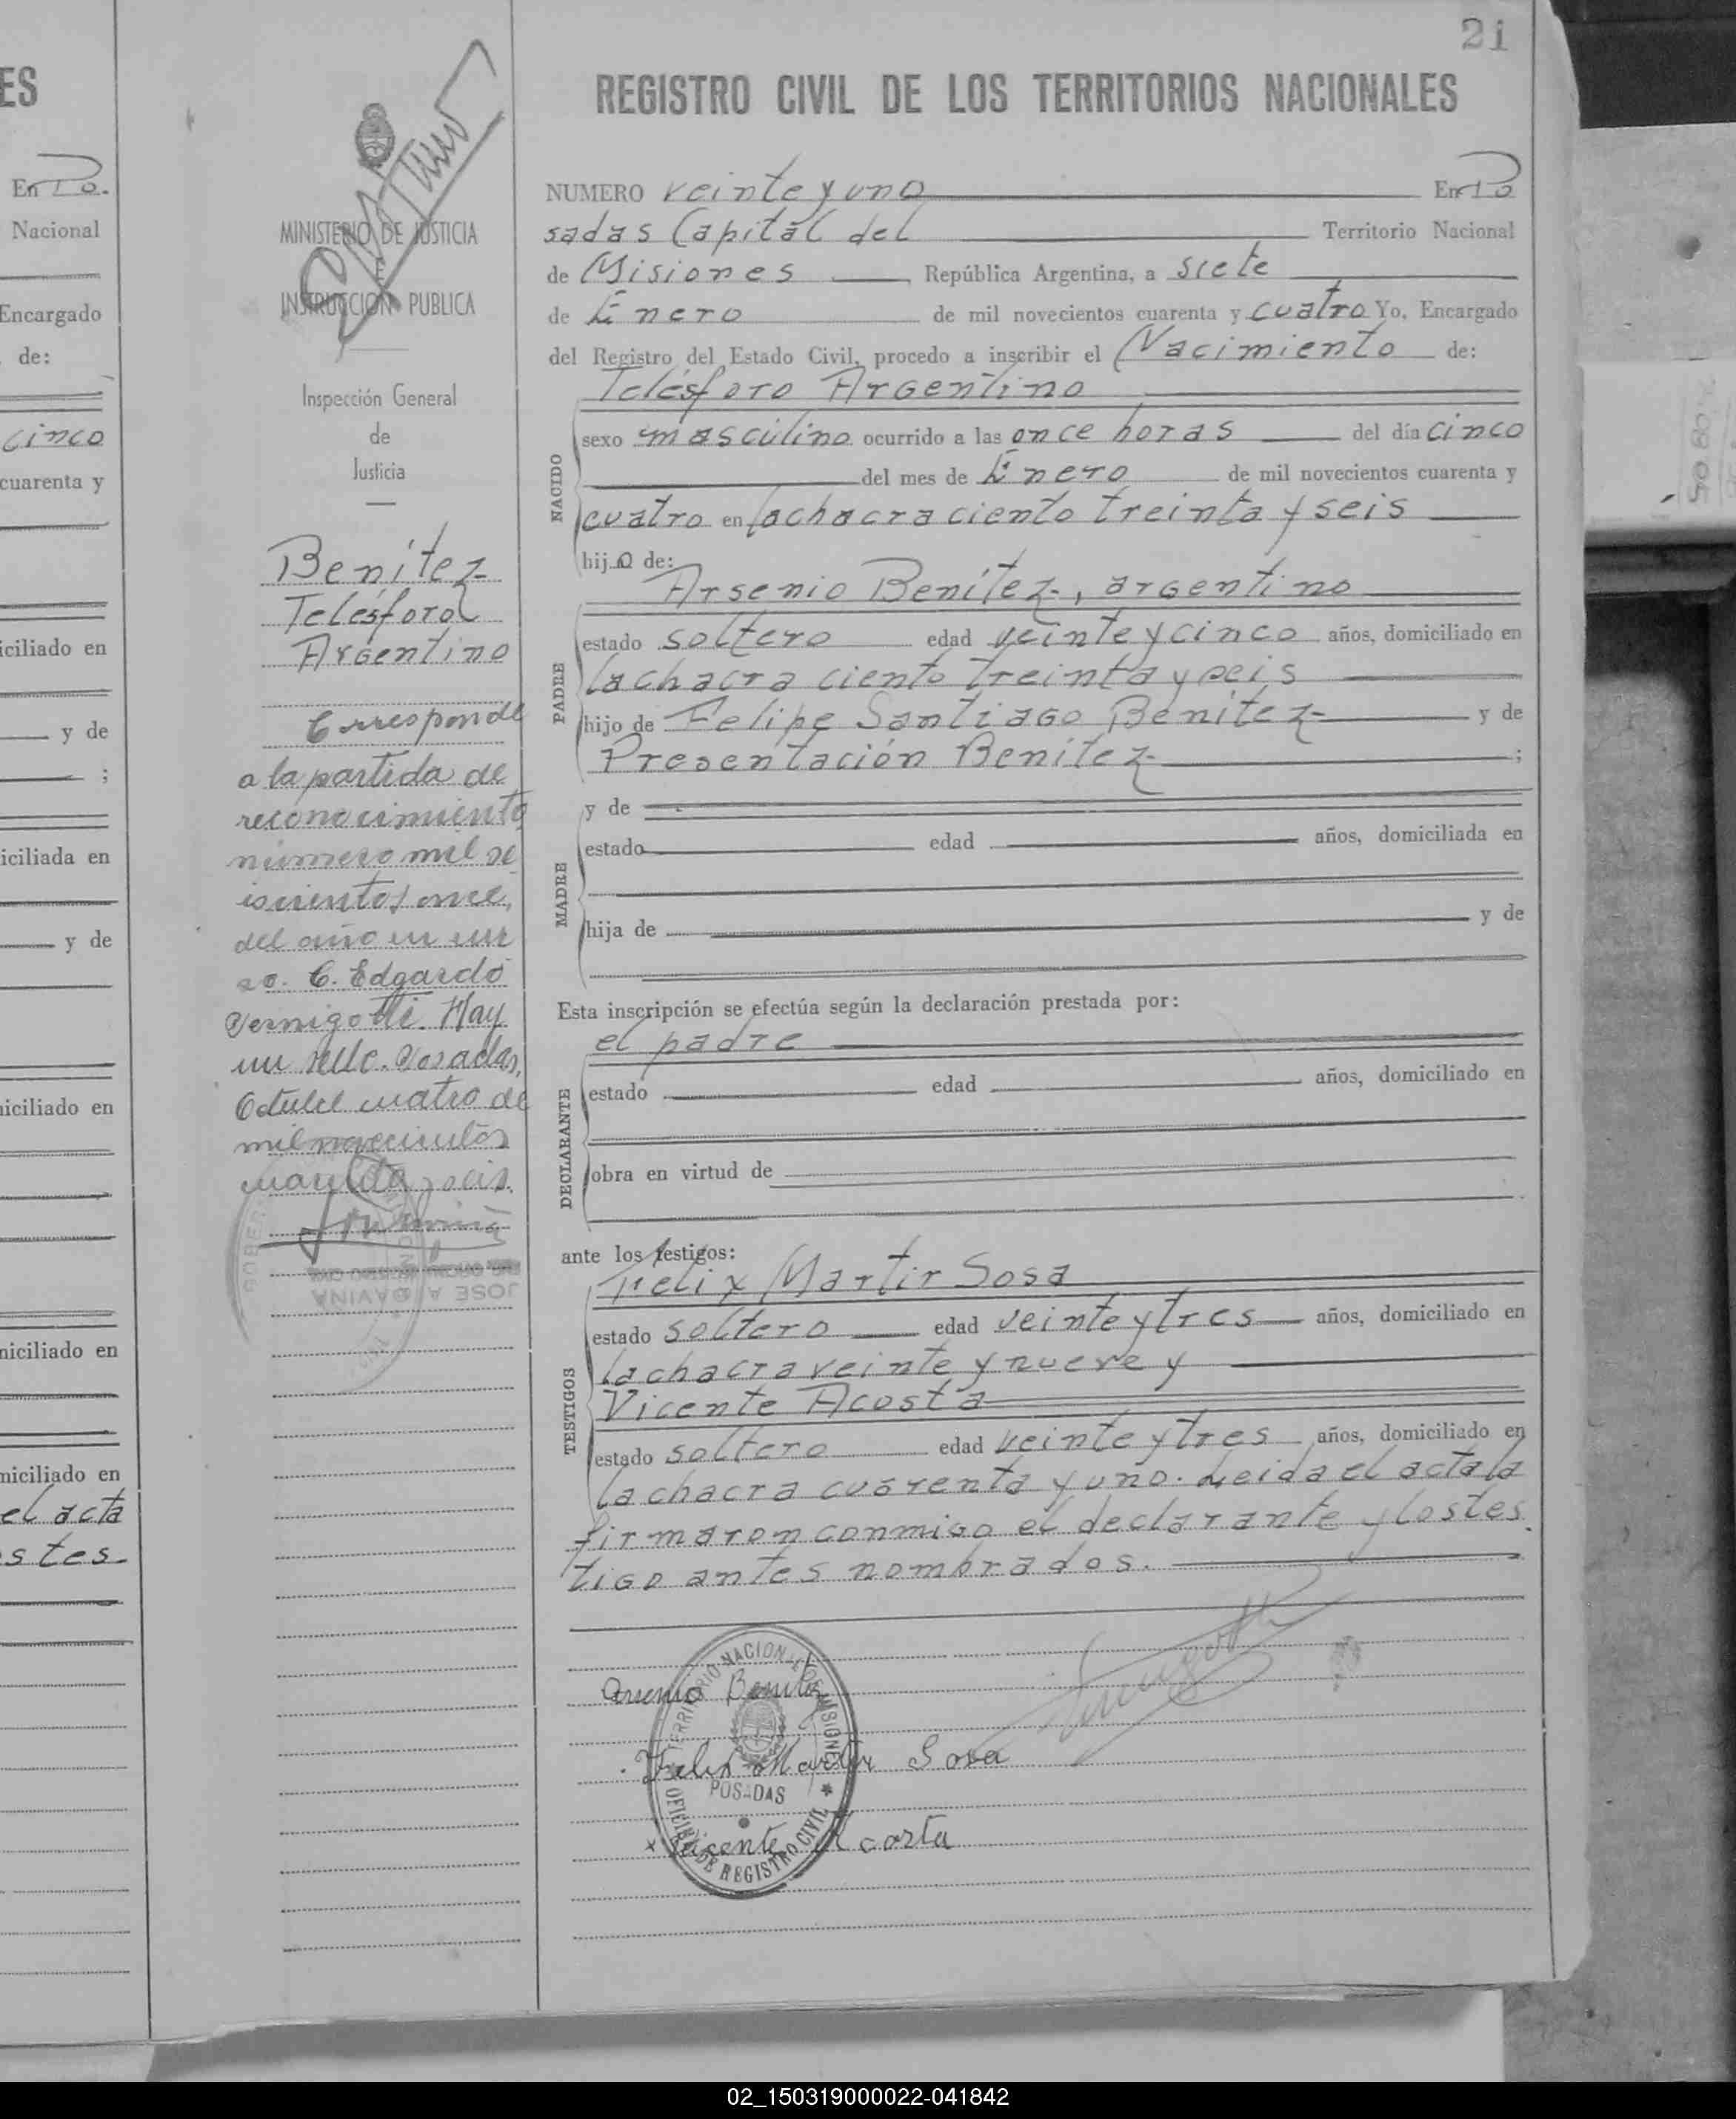 21
ES
En Po.
Nacional
Encargado
de:
cinco
cuarenta y
iciliado en
y de
;
iciliada en
y de
iciliado en
niciliado en
niciliado en
el acta
s tes.
MINISTERIO DE JUSTICIA
E
INSTRUCCION PUBLICA
Inspección General
de
Justicia
Benítez
Telésforo
Argentino
Corresponde
a la partida de
reconocimiento
número mil se
iscientos once,
del año en cur
so. C. Edgardo
Vernigotti. Hay
un sello. Posadas,
Octubre cuatro de
mil novecientos
cuarenta y seis.
JOSE A. DAVIÑA
REGISTRO CIVIL DE LOS TERRITORIOS NACIONALES
NUMERO veinte y uno En Po
sadas Capital del Territorio Nacional
de Misiones República Argentina, a siete
de Enero de mil novecientos cuarenta y cuatro Yo, Encargado
del Registro del Estado Civil, procedo a inscribir el Nacimiento de:
NACIDO
Telésforo Argentino
sexo masculino ocurrido a las once horas del día cinco
del mes de Enero de mil novecientos cuarenta y
cuatro en la chacra ciento treinta y seis
hijo de:
PADRE
Arsenio Benítez, argentino
estado soltero edad veinte y cinco años, domiciliado en
la chacra ciento treinta y seis
hijo de Felipe Santiago Benítez y de
Presentación Benítez ;
MADRE
y de
estado edad años, domiciliada en
hija de y de
Esta inscripción se efectúa según la declaración prestada por:
DECLARANTE
el padre
estado edad años, domiciliado en
obra en virtud de
ante los testigos:
TESTIGOS
Felix Martir Sosa
estado soltero edad veinte y tres años, domiciliado en
la chacra veinte y nueve y
Vicente Acosta
estado soltero edad veinte y tres años, domiciliado en
la chacra cuarenta y uno. Leida el acta la
firmaron conmigo el declarante y los tes
tigo antes nombrados.
Arsenio Benitez
Felix Martir Sosa
Vicente Acosta
TERRITORIO NACIONAL DE MISIONES
POSADAS
OFICINA DE REGISTRO CIVIL
02_150319000022-041842